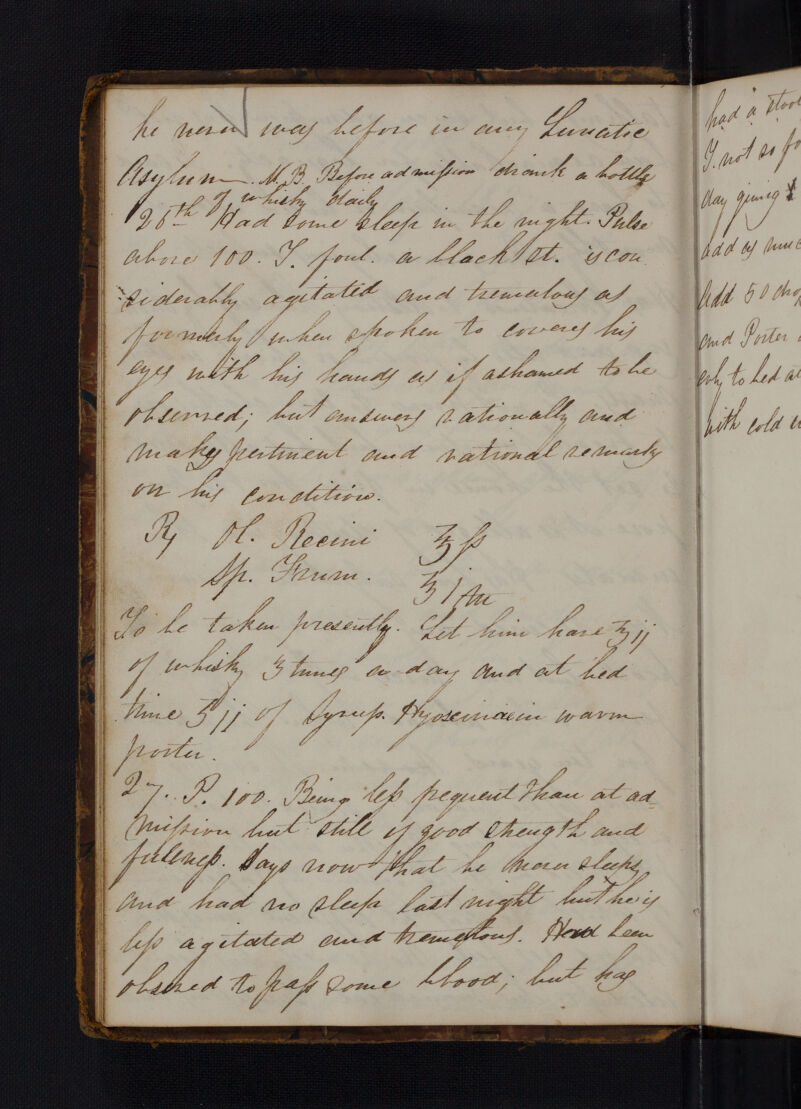 he never was before in any Lunatic
Asylum. N.B. Before admission drank a bottle
of whisky daily
26th Had some sleep in the night. Pulse
above 100. T. foul. a black St. is con
siderably agitated and tremulous as
formerly when spoken to covers his
eyes with his hands as if ashamed to be
observed; but answers rationally and
makes pertinent and rational remarks
on his condition.
℞ Ol. Recini ℥ß
Sp. Frum. ℥i
To be taken presently. Let him have ℥ij
of whisky 3 times a day and at bed
time ʒij of Syrup. Hyosciam in warm
porter.
27. P. 100. Being less frequent than at ad-
mission but still of good strength and
fulness. Says now that he never sleeps
and had no sleep last night but he is
less agitated and tremulous. Had been
observed to pass some blood; but has
had a stool
T. not so fo
day giving
add as muc
Add 50 drop
and Porter
to bed at
with cold